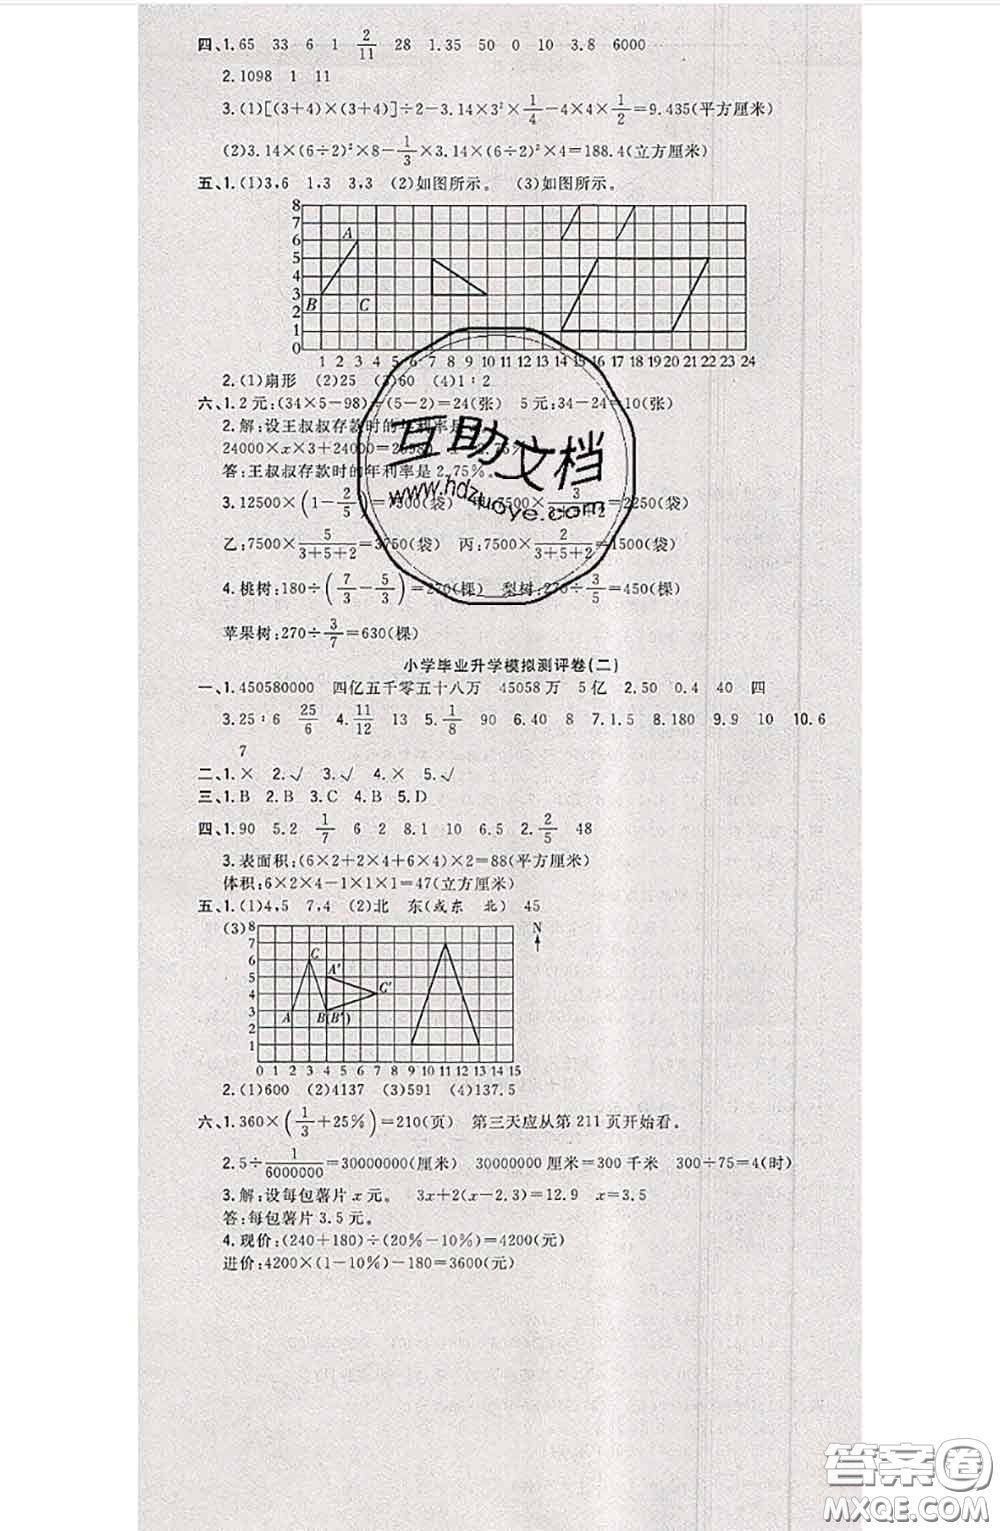 四、1.65 33 6 1 2/11 28 1.35 50 0 10 3.8 6000
2.1098 1 11
3.(1)[(3+4)×(3+4)]÷2-3.14×3²×1/4-4×4×1/2=9.435(平方厘米)
(2)3.14×(6÷2)²×8-1/3×3.14×(6÷2)²×4=188.4(立方厘米)
五、1.(1)3,6 1,3 3,3 (2)如图所示。 (3)如图所示。
8
7
6
5
4
3
2
1
0
A
B
C
1 2 3 4 5 6 7 8 9 10 11 12 13 14 15 16 17 18 19 20 21 22 23 24
2.(1)扇形 (2)25 (3)60 (4)1:2
六、1.2元:(34×5-98)÷(5-2)=24(张) 5元:34-24=10(张)
2.解:设王叔叔存款时的年利率是
24000×x×3+24000=25980 x=2.75%
答:王叔叔存款时的年利率是2.75%。
3.12500×(1-2/5)=7500(袋) 甲:7500×3/3+5+2=2250(袋)
乙:7500×5/3+5+2=3750(袋) 丙:7500×2/3+5+2=1500(袋)
4.桃树:180÷(7/3-5/3)=270(棵) 梨树:270÷3/5=450(棵)
苹果树:270÷3/7=630(棵)
互助文档
www.hdzuoye.com
小学毕业升学模拟测评卷(二)
一、1.450580000 四亿五千零五十八万 45058万 5亿 2.50 0.4 40 四
3.25:6 25/6 4.11/12 13 5.1/8 90 6.40 8 7.1.5 8.180 9.9 10 10.6
7
二、1.× 2.√ 3.√ 4.× 5.√
三、1.B 2.B 3.C 4.B 5.D
四、1.90 5.2 1/7 6 2 8.1 10 6.5 2.2/5 48
3.表面积:(6×2+2×4+6×4)×2=88(平方厘米)
体积:6×2×4-1×1×1=47(立方厘米)
五、1.(1)4,5 7,4 (2)北 东(或东 北) 45
(3)
8
7
6
5
4
3
2
1
N
C
A′
C′
A
B(B′)
0 1 2 3 4 5 6 7 8 9 10 11 12 13 14 15
2.(1)600 (2)4137 (3)591 (4)137.5
六、1.360×(1/3+25%)=210(页) 第三天应从第211页开始看。
2.5÷1/6000000=30000000(厘米) 30000000厘米=300千米 300÷75=4(时)
3.解:设每包薯片x元。 3x+2(x-2.3)=12.9 x=3.5
答:每包薯片3.5元。
4.现价:(240+180)÷(20%-10%)=4200(元)
进价:4200×(1-10%)-180=3600(元)
答案圈
MXQE.COM